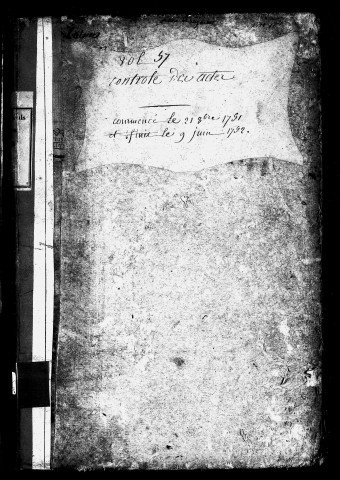 vol 57
controle des actes
commencé le 21 8bre 1751
et finie le 9 juin 1752.